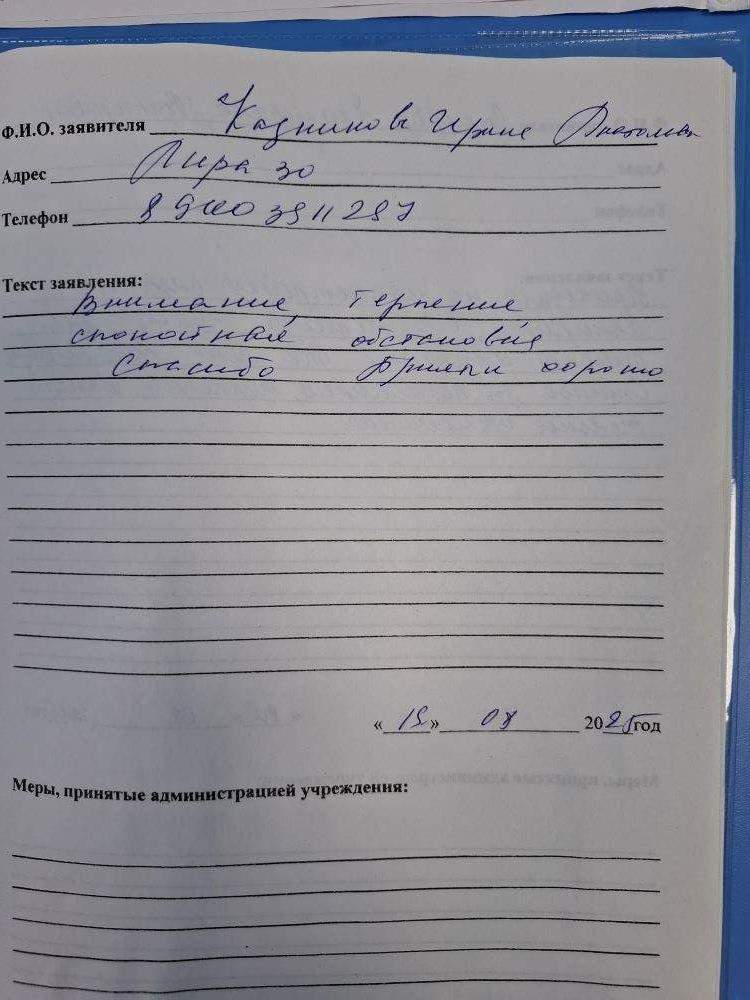 Ф.И.О. заявителя Казникова Ирина
Адрес Лира 30
Телефон
Текст заявления:
Внимание, терпение
спокойная обстановка
Спасибо Приняли хорошо
«19» 08 2025 год
Меры, принятые администрацией учреждения: